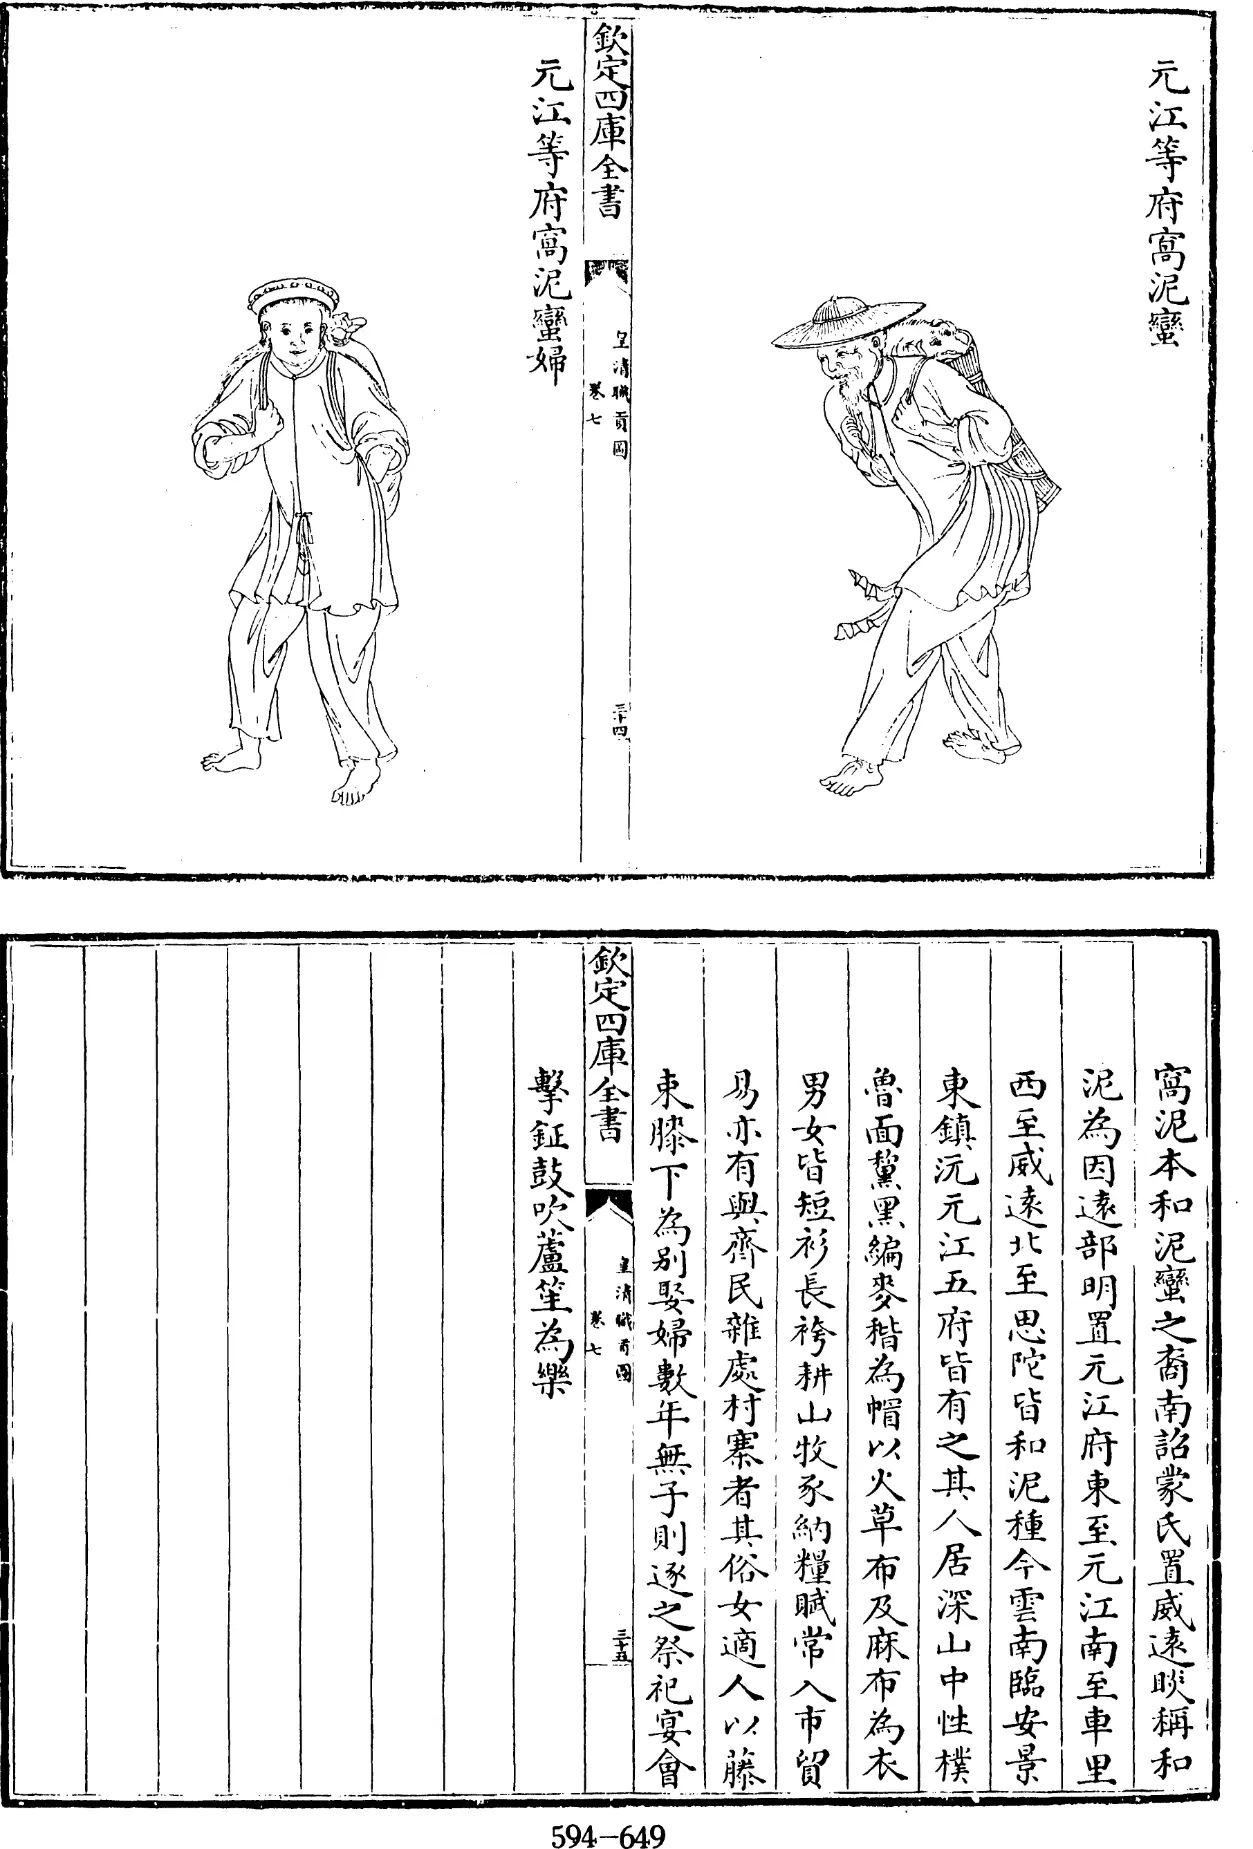 元江等府窩泥蠻
欽定四庫全書
皇清職貢圖
卷七
三十四
元江等府窩泥蠻婦
窩泥本和泥蠻之裔南詔蒙氏置威遠睒稱和
泥為因遠部明置元江府東至元江南至車里
西至威遠北至思陀皆和泥種今雲南臨安景
東鎮沅元江五府皆有之其人居深山中性樸
魯面黧黑編麥稭為帽以火草布及麻布為衣
男女皆短衫長袴耕山牧豕納糧賦常入市貿
易亦有與齊民雜處村寨者其俗女適人以藤
束膝下為别娶婦數年無子則逐之祭祀宴會
欽定四庫全書
皇清職貢圖
卷七
三十五
擊鉦鼓吹蘆笙為樂
594-649